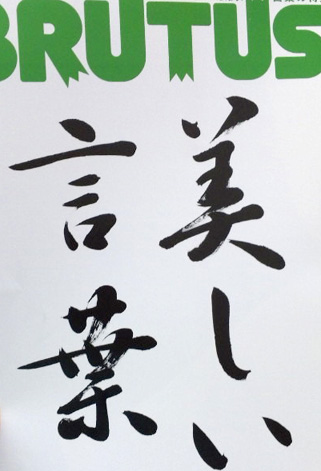 BRUTUS
美しい
言葉